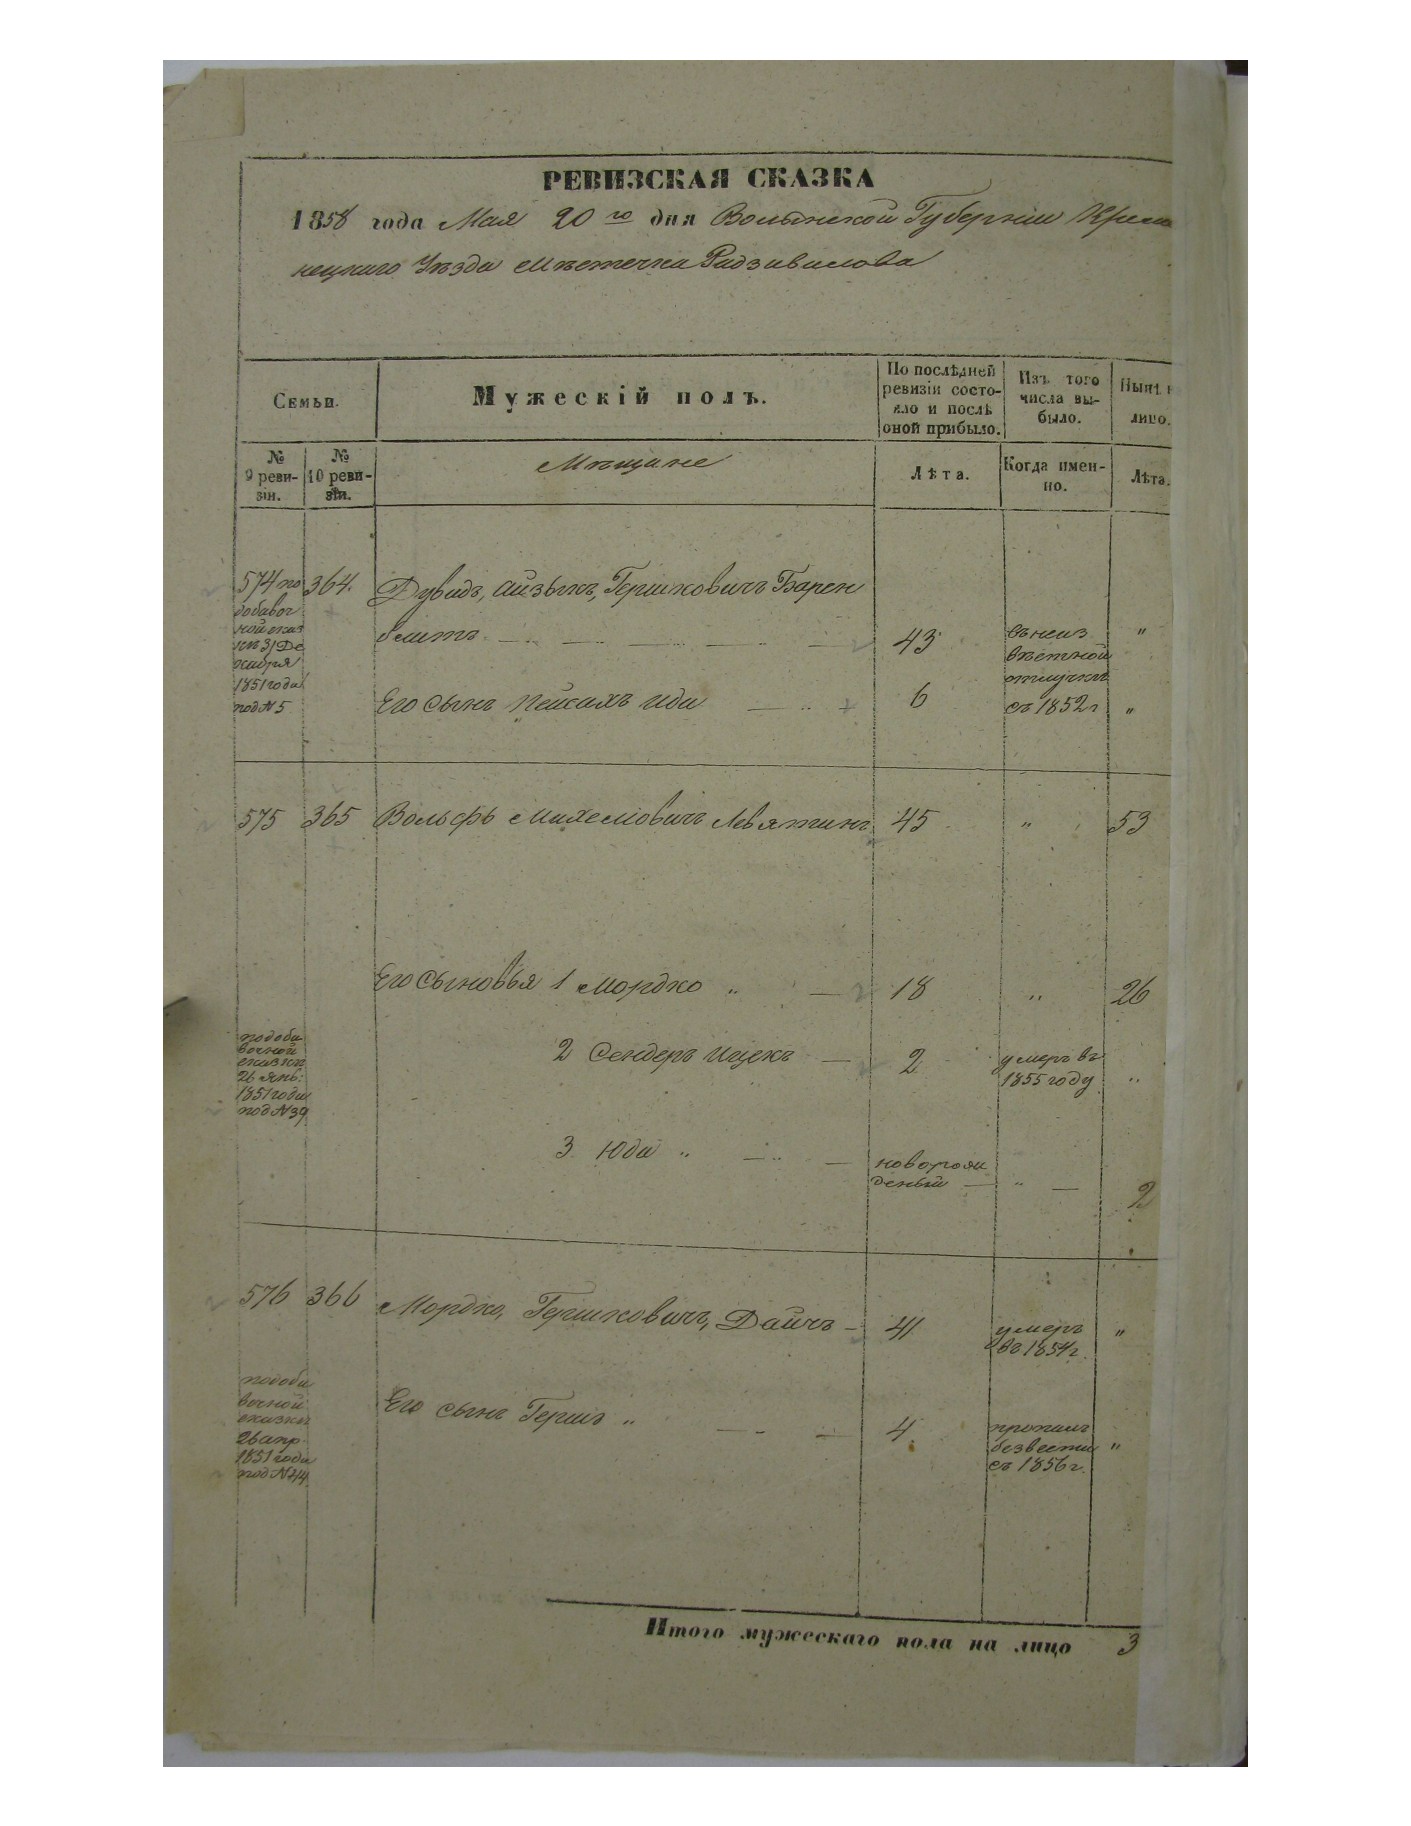 РЕВИЗСКАЯ СКАЗКА
1858 года Мая 20го дня Волынской Губерніи Креме
нецкаго Уѣзда Мѣстечка Радзивилова
Семьи.
Мужескій полъ.
По послѣдней ревизіи состояло и послѣ оной прибыло.
Изъ того числа выбыло.
Нынѣ н лицо.
№ 9 ревизіи.
№ 10 ревизіи.
Мѣщане
Лѣта.
Когда именно.
Лѣта.
574 по
добавоч
ной сказ
кѣ 31 Де
кабря
1851 года
под N 5
364.
Дувидъ, Айзыкъ, Гершковичъ Барен
блитъ
43
въ неиз
вѣстной
отлучкѣ
съ 1852 г
"
Его Сынъ Пейсахъ Юда
6
"
575
365
Вольфъ Михелiовичъ Левятинъ
45
"
53
Его Сыновья 1 Мордко "
18
"
26
по доба
вочной
сказкѣ
26 Янв:
1851 года
под N 39
2 Сендеръ Ицекъ
2
умеръ въ
1855 году
"
3 Юда "
новорож
деный
"
2
576
366
Мордко, Гершковичъ, Дайчъ
41
умеръ
въ 1854 г.
"
по доба
вочной
сказкѣ
26 апр.
1851 года
под N 214
Его сынъ Гершъ "
4
пропалъ
безвести
съ 1856 г.
"
Итого мужескаго пола на лицо 3